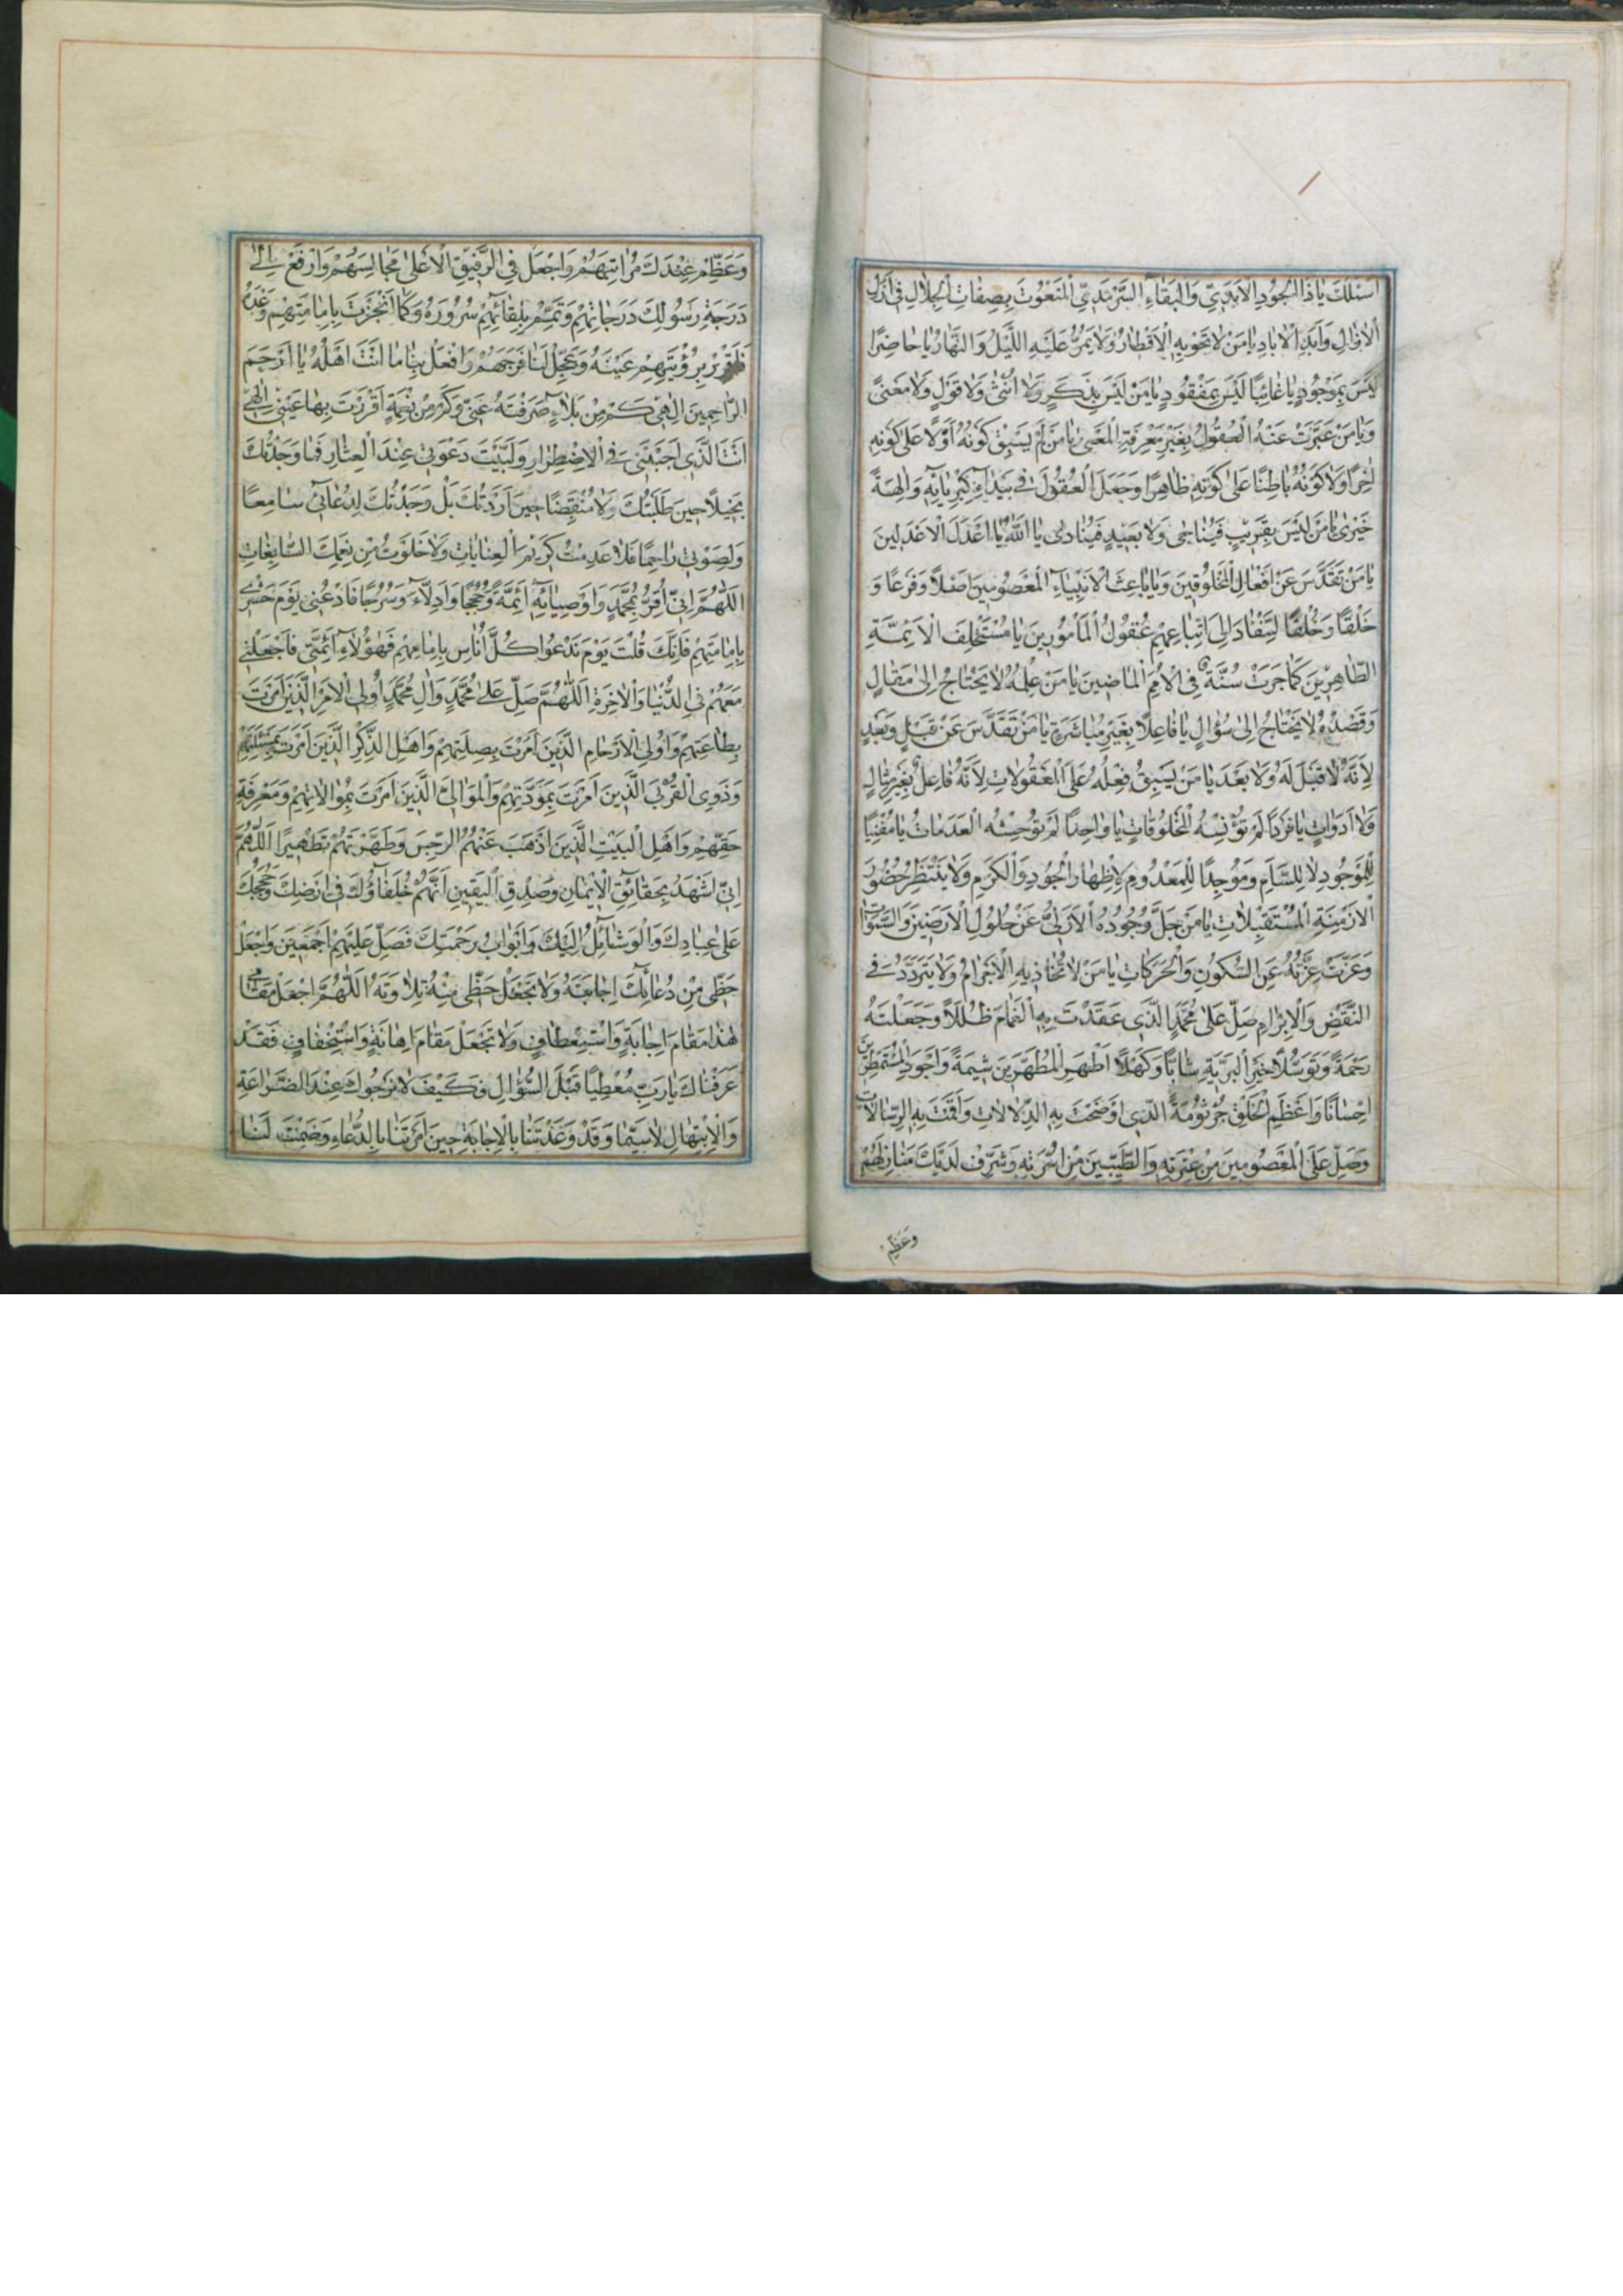 اَسْئَلُكَ يَا ذَا الْجُودِ الْاَبَدِيِّ وَالْبَقَاءِ السَّرْمَدِيِّ الْمَنْعُوتَ بِصِفَاتِ الْجَلَالِ فِي اَزَلِ
الْاٰزَالِ وَاَبَدِ الْاٰبَادِ يَا مَنْ لَا تَحْوِيهِ الْاَقْطَارُ وَلَا يَمُرُّ عَلَيْهِ اللَّيْلُ وَالنَّهَارُ يَا حَاضِرًا
لَيْسَ بِمَوْجُودٍ يَا غَائِبًا لَيْسَ بِمَفْقُودٍ يَا مَنْ لَيْسَ بِذَكَرٍ وَلَا اُنْثٰى وَلَا قَوْلٍ وَلَا مَعْنًى
وَيَا مَنْ عَبَّرَتْ عَنْهُ الْعُقُولُ بِغَيْرِ مَعْرِفَةِ الْمَعْنٰى يَا مَنْ لَمْ يَسْبِقْ كَوْنُهُ اَوَّلًا عَلٰى كَوْنِهِ
اٰخِرًا وَلَا كَوْنُهُ بَاطِنًا عَلٰى كَوْنِهِ ظَاهِرًا وَجَعَلَ الْعُقُولَ فِي بَيْدَاءِ كِبْرِيَائِهِ وَالِهَةً
حَيْرٰى يَا مَنْ لَيْسَ بِقَرِيبٍ فَيُنَاجٰى وَلَا بَعِيدٍ فَيُنَادٰى يَا اَللّٰهُ يَا اَعْدَلَ الْاَعْدَلِينَ
يَا مَنْ تَقَدَّسَ عَنْ اَفْعَالِ الْمَخْلُوقِينَ وَيَا بَاعِثَ الْاَنْبِيَاءِ الْمَعْصُومِينَ اَصْلًا وَفَرْعًا وَ
خَلْقًا وَخُلْقًا لِتَنْقَادَ اِلَى اتِّبَاعِهِمْ عُقُولُ الْمَأْمُورِينَ يَا مُسْتَخْلِفَ الْاَئِمَّةِ
الطَّاهِرِينَ كَمَا جَرَتْ سُنَّةٌ فِي الْاُمَمِ الْمَاضِينَ يَا مَنْ عِلْمُهُ لَا يَحْتَاجُ اِلٰى مَقَالٍ
وَقَصْدُهُ لَا يَحْتَاجُ اِلٰى سُؤَالٍ يَا فَاعِلًا بِغَيْرِ مُبَاشَرَةٍ يَا مَنْ تَقَدَّسَ عَنْ قَبْلٍ وَبَعْدٍ
لِاَنَّهُ لَا قَبْلَ لَهُ وَلَا بَعْدَ يَا مَنْ يَسْبِقُ فِعْلُهُ عَلَى الْمَعْقُولَاتِ لِاَنَّهُ فَاعِلٌ بِغَيْرِ مِثَالٍ
وَلَا اَدَوَاتٍ يَا فَرْدًا لَمْ تُؤْنِسْهُ الْمَخْلُوقَاتُ يَا وَاحِدًا لَمْ تُوحِشْهُ الْعَدَمَاتُ يَا مُفْنِيًا
لِلْمَوْجُودِ لَا لِلسَّأَمِ وَمُوجِدًا لِلْمَعْدُومِ لِاِظْهَارِ الْجُودِ وَالْكَرَمِ وَلَا يَنْتَظِرُ حُضُورَ
الْاَزْمِنَةِ الْمُسْتَقْبِلَاتِ يَا مَنْ جَلَّ وُجُودُهُ الْاَزَلِيُّ عَنْ حُلُولِ الْاَرَضِينَ وَالسَّمٰوَاتِ
وَعَزَّتْ عِزَّتُهُ عَنِ السُّكُونِ وَالْحَرَكَاتِ يَا مَنْ لَا تُحَاذِيهِ الْاَجْرَامُ وَلَا يَتَرَدَّدُ فِي
النَّقْضِ وَالْاِبْرَامِ صَلِّ عَلٰى مُحَمَّدٍ الَّذِي عَقَدْتَ بِهِ الْغَمَامَ ظُلَلًا وَجَعَلْتَهُ
رَحْمَةً وَتَوَسُّلًا خَيْرِ الْبَرِيَّةِ شَابًّا وَكَهْلًا اَطْهَرِ الْمُطَهَّرِينَ شِيمَةً وَاَجْوَدِ الْمُسْتَمْطَرِينَ
اِحْسَانًا وَاَعْظَمِ الْخَلْقِ جُرْثُومَةً الَّذِي اَوْضَحْتَ بِهِ الدِّلَالَاتِ وَاَقَمْتَ بِهِ الرِّسَالَاتِ
وَصَلِّ عَلَى الْمَعْصُومِينَ مِنْ عِتْرَتِهِ وَالطَّيِّبِينَ مِنْ اُسْرَتِهِ وَشَرِّفْ لَدَيْكَ مَنَازِلَهُمْ
وَعَظِّمْ
وَعَظِّمْ عِنْدَكَ مَرَاتِبَهُمْ وَاجْعَلْ فِي الرَّفِيقِ الْاَعْلٰى مَجَالِسَهُمْ وَارْفَعْ اِلٰى
دَرَجَةِ رَسُولِكَ دَرَجَاتِهِمْ وَتَمِّمْ بِلِقَائِهِمْ سُرُورَهُ وَكَمَا اَنْجَزْتَ بِاِمَامَتِهِمْ وَعْدَهُ
فَاَقْرِرْ بِرُؤْيَتِهِمْ عَيْنَهُ وَعَجِّلْ لَنَا فَرَجَهُمْ وَافْعَلْ بِنَا مَا اَنْتَ اَهْلُهُ يَا اَرْحَمَ
الرَّاحِمِينَ اِلٰهِي كَمْ مِنْ بَلَاءٍ صَرَفْتَهُ عَنِّي وَكَمْ مِنْ نِعْمَةٍ اَقْرَرْتَ بِهَا عَيْنِي اِلٰهِي
اَنْتَ الَّذِي اَجَبْتَنِي فِي الْاِضْطِرَارِ وَلَبَّيْتَ دَعْوَتِي عِنْدَ الْعِثَارِ فَمَا وَجَدْتُكَ
بَخِيلًا حِينَ طَلَبْتُكَ وَلَا مُنْقَبِضًا حِينَ اَرَدْتُكَ بَلْ وَجَدْتُكَ لِدُعَائِي سَامِعًا
وَلِصَوْتِي رَاحِمًا فَلَا عَدِمْتُ كَرِيمَ الْعِنَايَاتِ وَلَا خَلَوْتُ مِنْ نِعَمِكَ السَّابِغَاتِ
اَللّٰهُمَّ اِنِّي اُقِرُّ بِمُحَمَّدٍ وَاَوْصِيَائِهِ اَئِمَّةً وَحُجَجًا وَاَدِلَّاءَ وَسُرُجًا فَادْعُنِي يَوْمَ حَشْرِي
بِاِمَامَتِهِمْ فَاِنَّكَ قُلْتَ يَوْمَ نَدْعُوا كُلَّ اُنَاسٍ بِاِمَامِهِمْ فَهٰؤُلَاءِ اَئِمَّتِي فَاجْعَلْنِي
مَعَهُمْ فِي الدُّنْيَا وَالْاٰخِرَةِ اَللّٰهُمَّ صَلِّ عَلٰى مُحَمَّدٍ وَاٰلِ مُحَمَّدٍ اُولِي الْاَمْرِ الَّذِينَ اَمَرْتَ
بِطَاعَتِهِمْ وَاُولِي الْاَرْحَامِ الَّذِينَ اَمَرْتَ بِصِلَتِهِمْ وَاَهْلِ الذِّكْرِ الَّذِينَ اَمَرْتَ بِمَسْئَلَتِهِمْ
وَذَوِي الْقُرْبٰى الَّذِينَ اَمَرْتَ بِمَوَدَّتِهِمْ وَالْمَوَالِي الَّذِينَ اَمَرْتَ بِمُوَالَاتِهِمْ وَمَعْرِفَةِ
حَقِّهِمْ وَاَهْلِ الْبَيْتِ الَّذِينَ اَذْهَبَ عَنْهُمُ الرِّجْسَ وَطَهَّرْتَهُمْ تَطْهِيرًا اَللّٰهُمَّ
اِنِّي اَشْهَدُ بِحَقَائِقِ الْاِيمَانِ وَصِدْقِ الْيَقِينِ اَنَّهُمْ خُلَفَاؤُكَ فِي اَرْضِكَ وَحُجَجُكَ
عَلٰى عِبَادِكَ وَالْوَسَائِلُ اِلَيْكَ وَاَبْوَابُ رَحْمَتِكَ فَصَلِّ عَلَيْهِمْ اَجْمَعِينَ وَاجْعَلْ
حَظِّي مِنْ دُعَائِكَ اِجَابَتَهُ وَلَا تَجْعَلْ حَظِّي مِنْهُ تِلَاوَتَهُ اَللّٰهُمَّ اجْعَلْ مَقَامِي
هٰذَا مَقَامَ اِجَابَةٍ وَاسْتِعْطَافٍ وَلَا تَجْعَلْ مَقَامَ اِهَانَةٍ وَاسْتِخْفَافٍ فَقَدْ
عَرَفْنَاكَ يَا رَبِّ مُعْطِيًا قَبْلَ السُّؤَالِ فَكَيْفَ لَا نَرْجُوكَ عِنْدَ الضَّرَاعَةِ
وَالْاِبْتِهَالِ لَا سِيَّمَا وَقَدْ وَعَدْتَنَا بِالْاِجَابَةِ حِينَ اَمَرْتَنَا بِالدُّعَاءِ وَضَمِنْتَ لَنَا